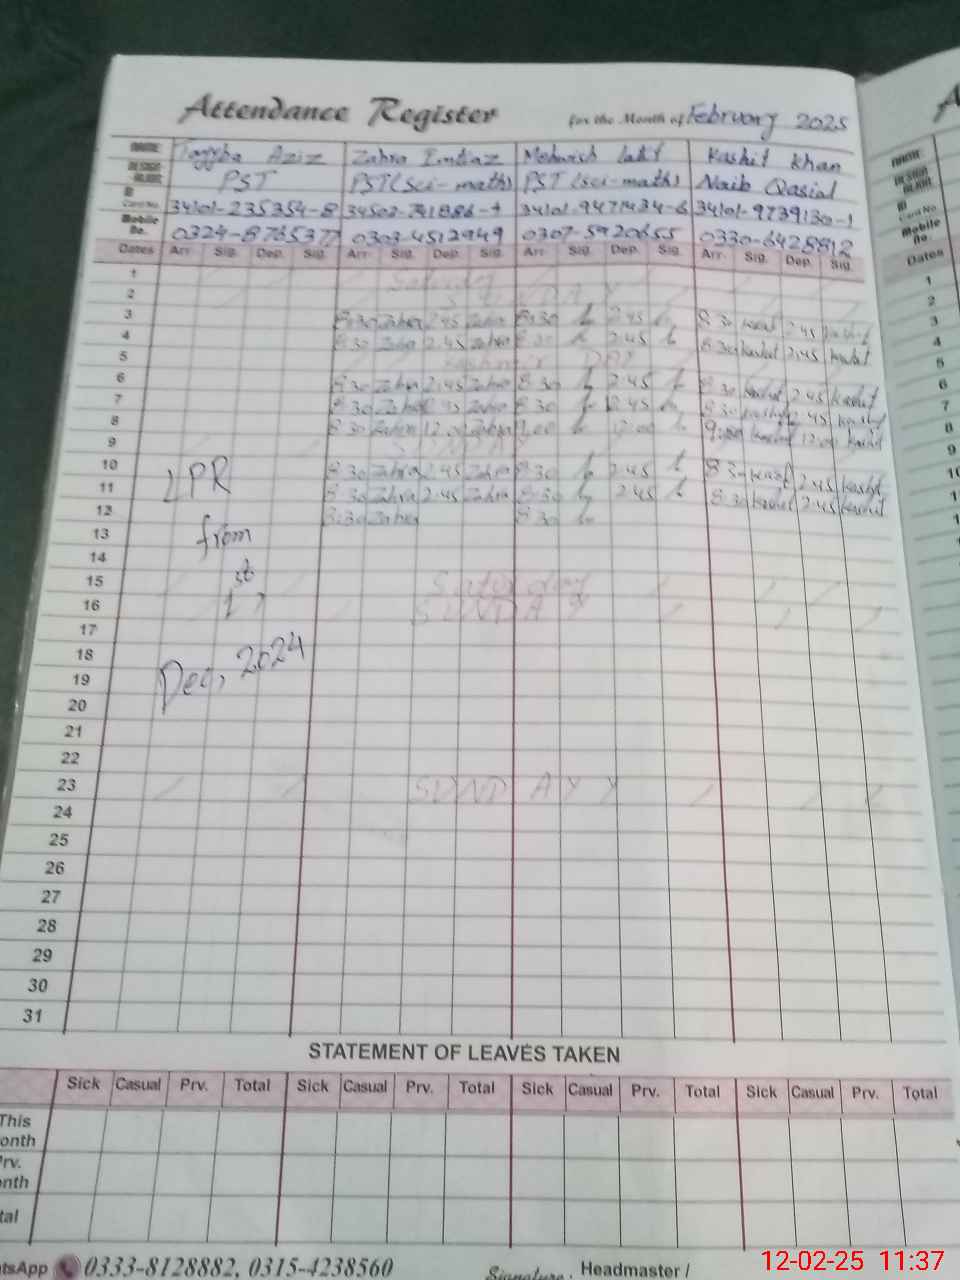 Attendance Register for the Month of February 2025
NAME Tayyba Aziz Zahra Imtiaz Mehwish Latif Kashif Khan
DESIGN PST PST(Sci-math) PST (sci-math) Naib Qasid
ID Card No. 34101-235354-8 34502-741886-4 34101-9471434-6 34101-9739130-1
Mobile No. 0324-8765377 0303-4512949 0307-5920655 0330-6428812
Dates Arr. Sig. Dep. Sig. Arr. Sig. Dep. Sig. Arr. Sig. Dep. Sig. Arr. Sig. Dep. Sig.
1 Saturday
2 SUNDAY
3 8:30 Zahra 2:45 Zahra 8:30 2:45 8:30 Kashif 2:45 Kashif
4 8:30 Zahra 2:45 Zahra 8:30 2:45 8:30 Kashif 2:45 Kashif
5 Kashmir DAY
6 8:30 Zahra 2:45 Zahra 8:30 2:45 8:30 Kashif 2:45 Kashif
7 8:30 Zahra 2:45 Zahra 8:30 2:45 8:30 Kashif 2:45 Kashif
8 8:30 Zahra 12:00 Zahra 12:00 9:00 Kashif 12:00 Kashif
9 SUNDAY
10 LPR 8:30 Zahra 2:45 Zahra 8:30 2:45 8:30 Kashif 2:45 Kashif
11 8:30 Zahra 2:45 Zahra 8:30 2:45 8:30 Kashif 2:45 Kashif
12 8:30 Zahra 8:30
13 from
14
15 1st Saturday
16 SUNDAY
17
18
19 Dec, 2024
20
21
22
23 SUNDAY
24
25
26
27
28
29
30
31
STATEMENT OF LEAVES TAKEN
Sick Casual Prv. Total Sick Casual Prv. Total Sick Casual Prv. Total Sick Casual Prv. Total
This
onth
Prv.
nth
tal
atsApp 0333-8128882, 0315-4238560 Signature: Headmaster /
A
NAME
DESIGN
ID
Card No.
Mobile
No.
Dates
1
2
3
4
5
6
7
8
9
10
11
12-02-25 11:37